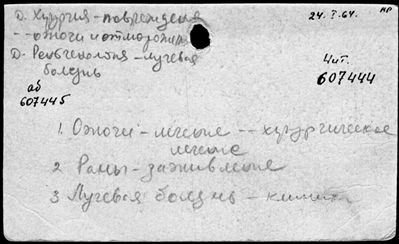 Д. Хирургия - повреждения
-- ожоги и отморожения
Д. Рентгенология - лучевая
болезнь
аб
607445
24. I. 64.
НР
Чит.
607444
1. Ожоги - лечение -- хирургическое
лечение
2 Раны - заживление
3 Лучевая болезнь - клиника